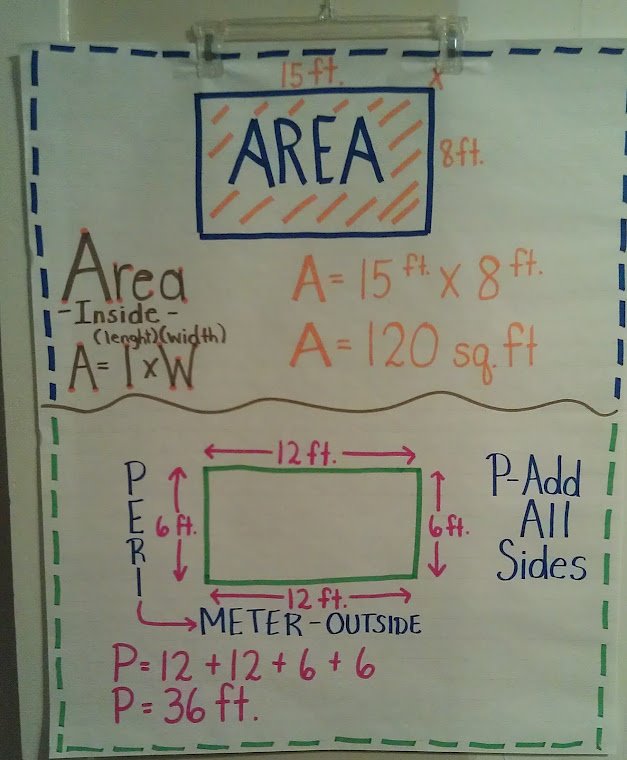 15 ft.
x
AREA
8 ft.
Area
- Inside -
(lenght)(width)
A= l x W
A= 15 ft. x 8 ft.
A= 120 sq. ft
12 ft.
PERI
6 ft.
6 ft.
P-Add
All
Sides
12 ft.
METER-OUTSIDE
P= 12 + 12 + 6 + 6
P= 36 ft.